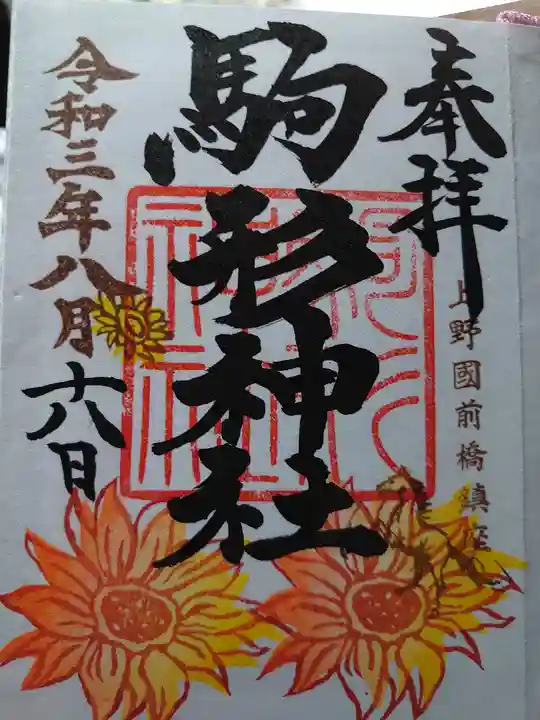 奉拝
上野國前橋鎮座
駒形神社
令和三年八月
十八日